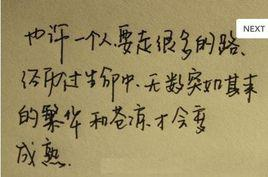 也许一个人,要走很多的路、
经历过生命中无数突如其来
的繁华和苍凉才会变
成熟.
NEXT